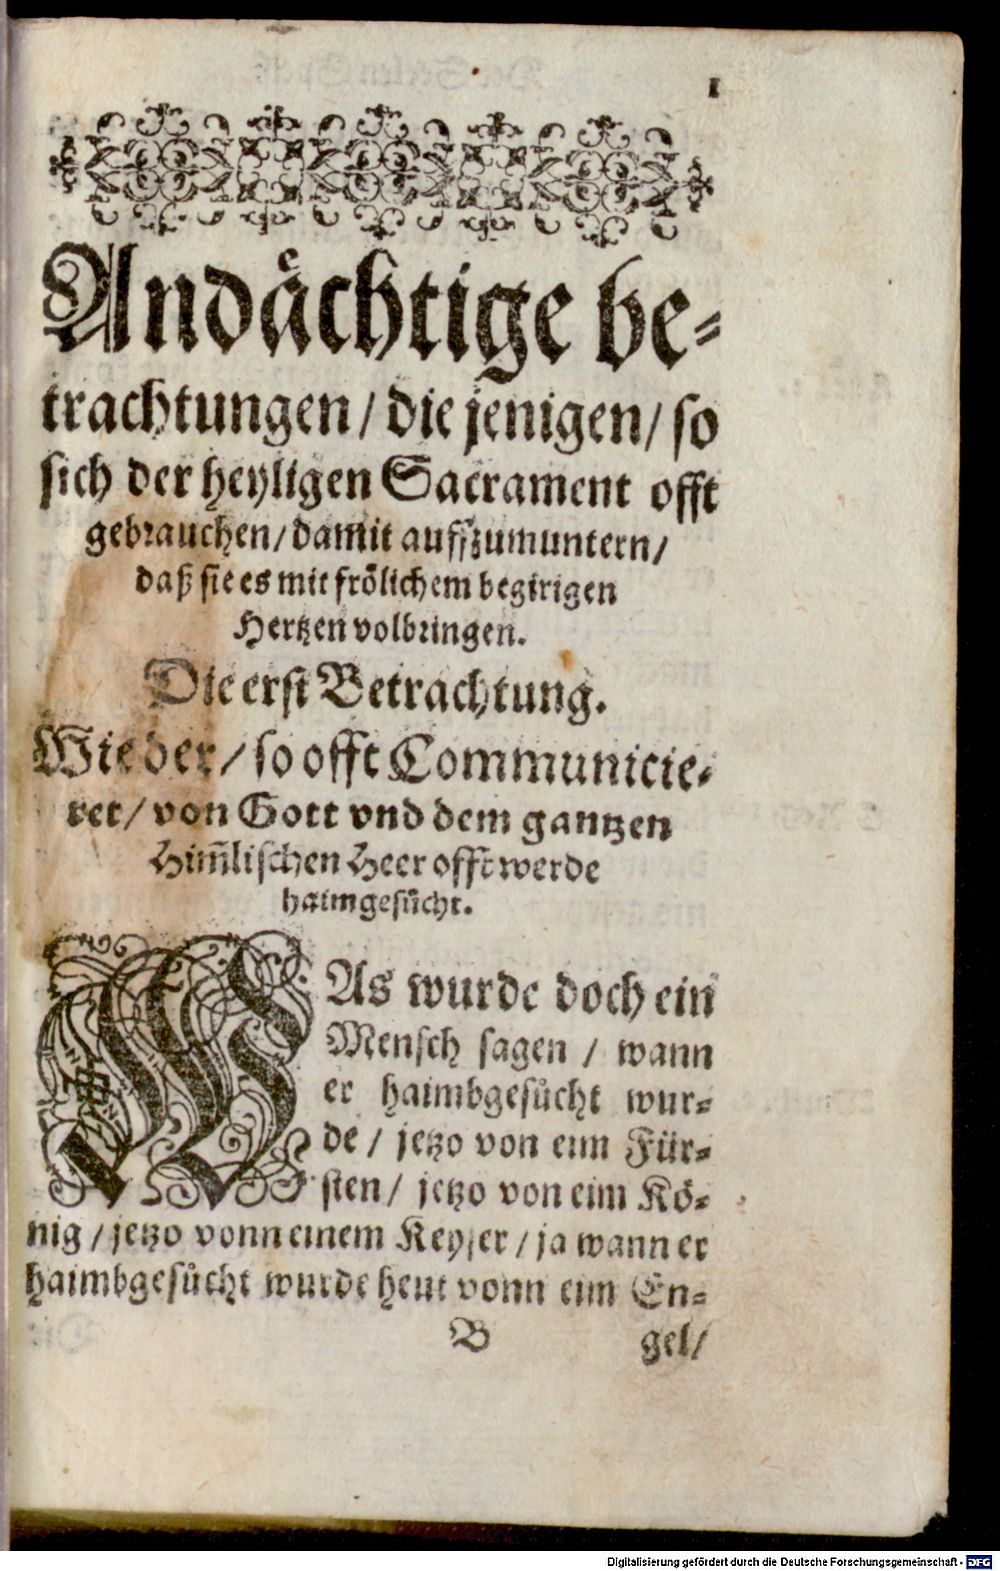 1
Andaͤchtige be-
trachtungen/ die jenigen/ so
sich der heyligen Sacrament offt
gebrauchen/ damit auffzumuntern/
daß sie es mit froͤlichem begirigen
Hertzen volbringen.
Die erst Betrachtung.
Wie der/ so offt Communicie-
ret/ von Gott vnd dem gantzen
Him̃lischen Heer offt werde
haimgesuͤcht.
WAs wurde doch ein
Mensch sagen / wann
er haimbgesuͤcht wur-
de / jetzo von eim Für-
sten/ jetzo von eim Kö-
nig / jetzo vonn einem Keyser / ja wann er
haimbgesuͤcht wurde heut vonn eim En-
B gel/
Digitalisierung gefördert durch die Deutsche Forschungsgemeinschaft - DFG